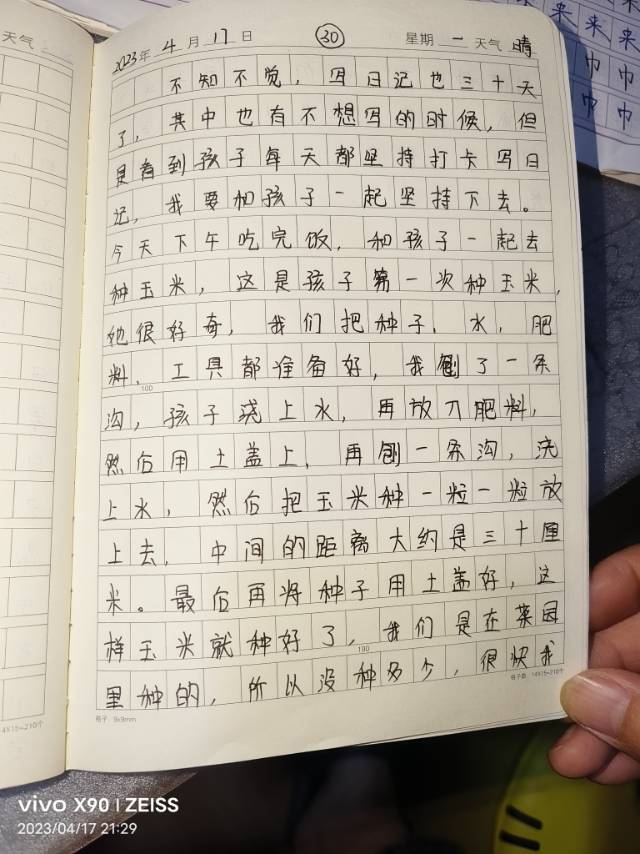 天气
2023年 4月 17日 30 星期 一 天气 晴
不知不觉，写日记也三十天
了，其中也有不想写的时候，但
是看到孩子每天都坚持打卡写日
记，我要和孩子一起坚持下去。
今天下午吃完饭，和孩子一起去
种玉米，这是孩子第一次种玉米，
她很好奇，我们把种子、水，肥
料、工具都准备好，我刨了一条
100
沟，孩子浇上水，再放入肥料，
然后用土盖上，再刨一条沟，浇
上水，然后把玉米种一粒一粒放
上去，中间的距离大约是三十厘
米。最后再将种子用土盖好，这
样玉米就种好了，我们是在菜园
190
里种的，所以没种多少，很快我
格子：9x9mm
格子数：14X15=210个
14X15=210个
来 来 来
巾
巾
巾
vivo X90 | ZEISS
2023/04/17 21:29